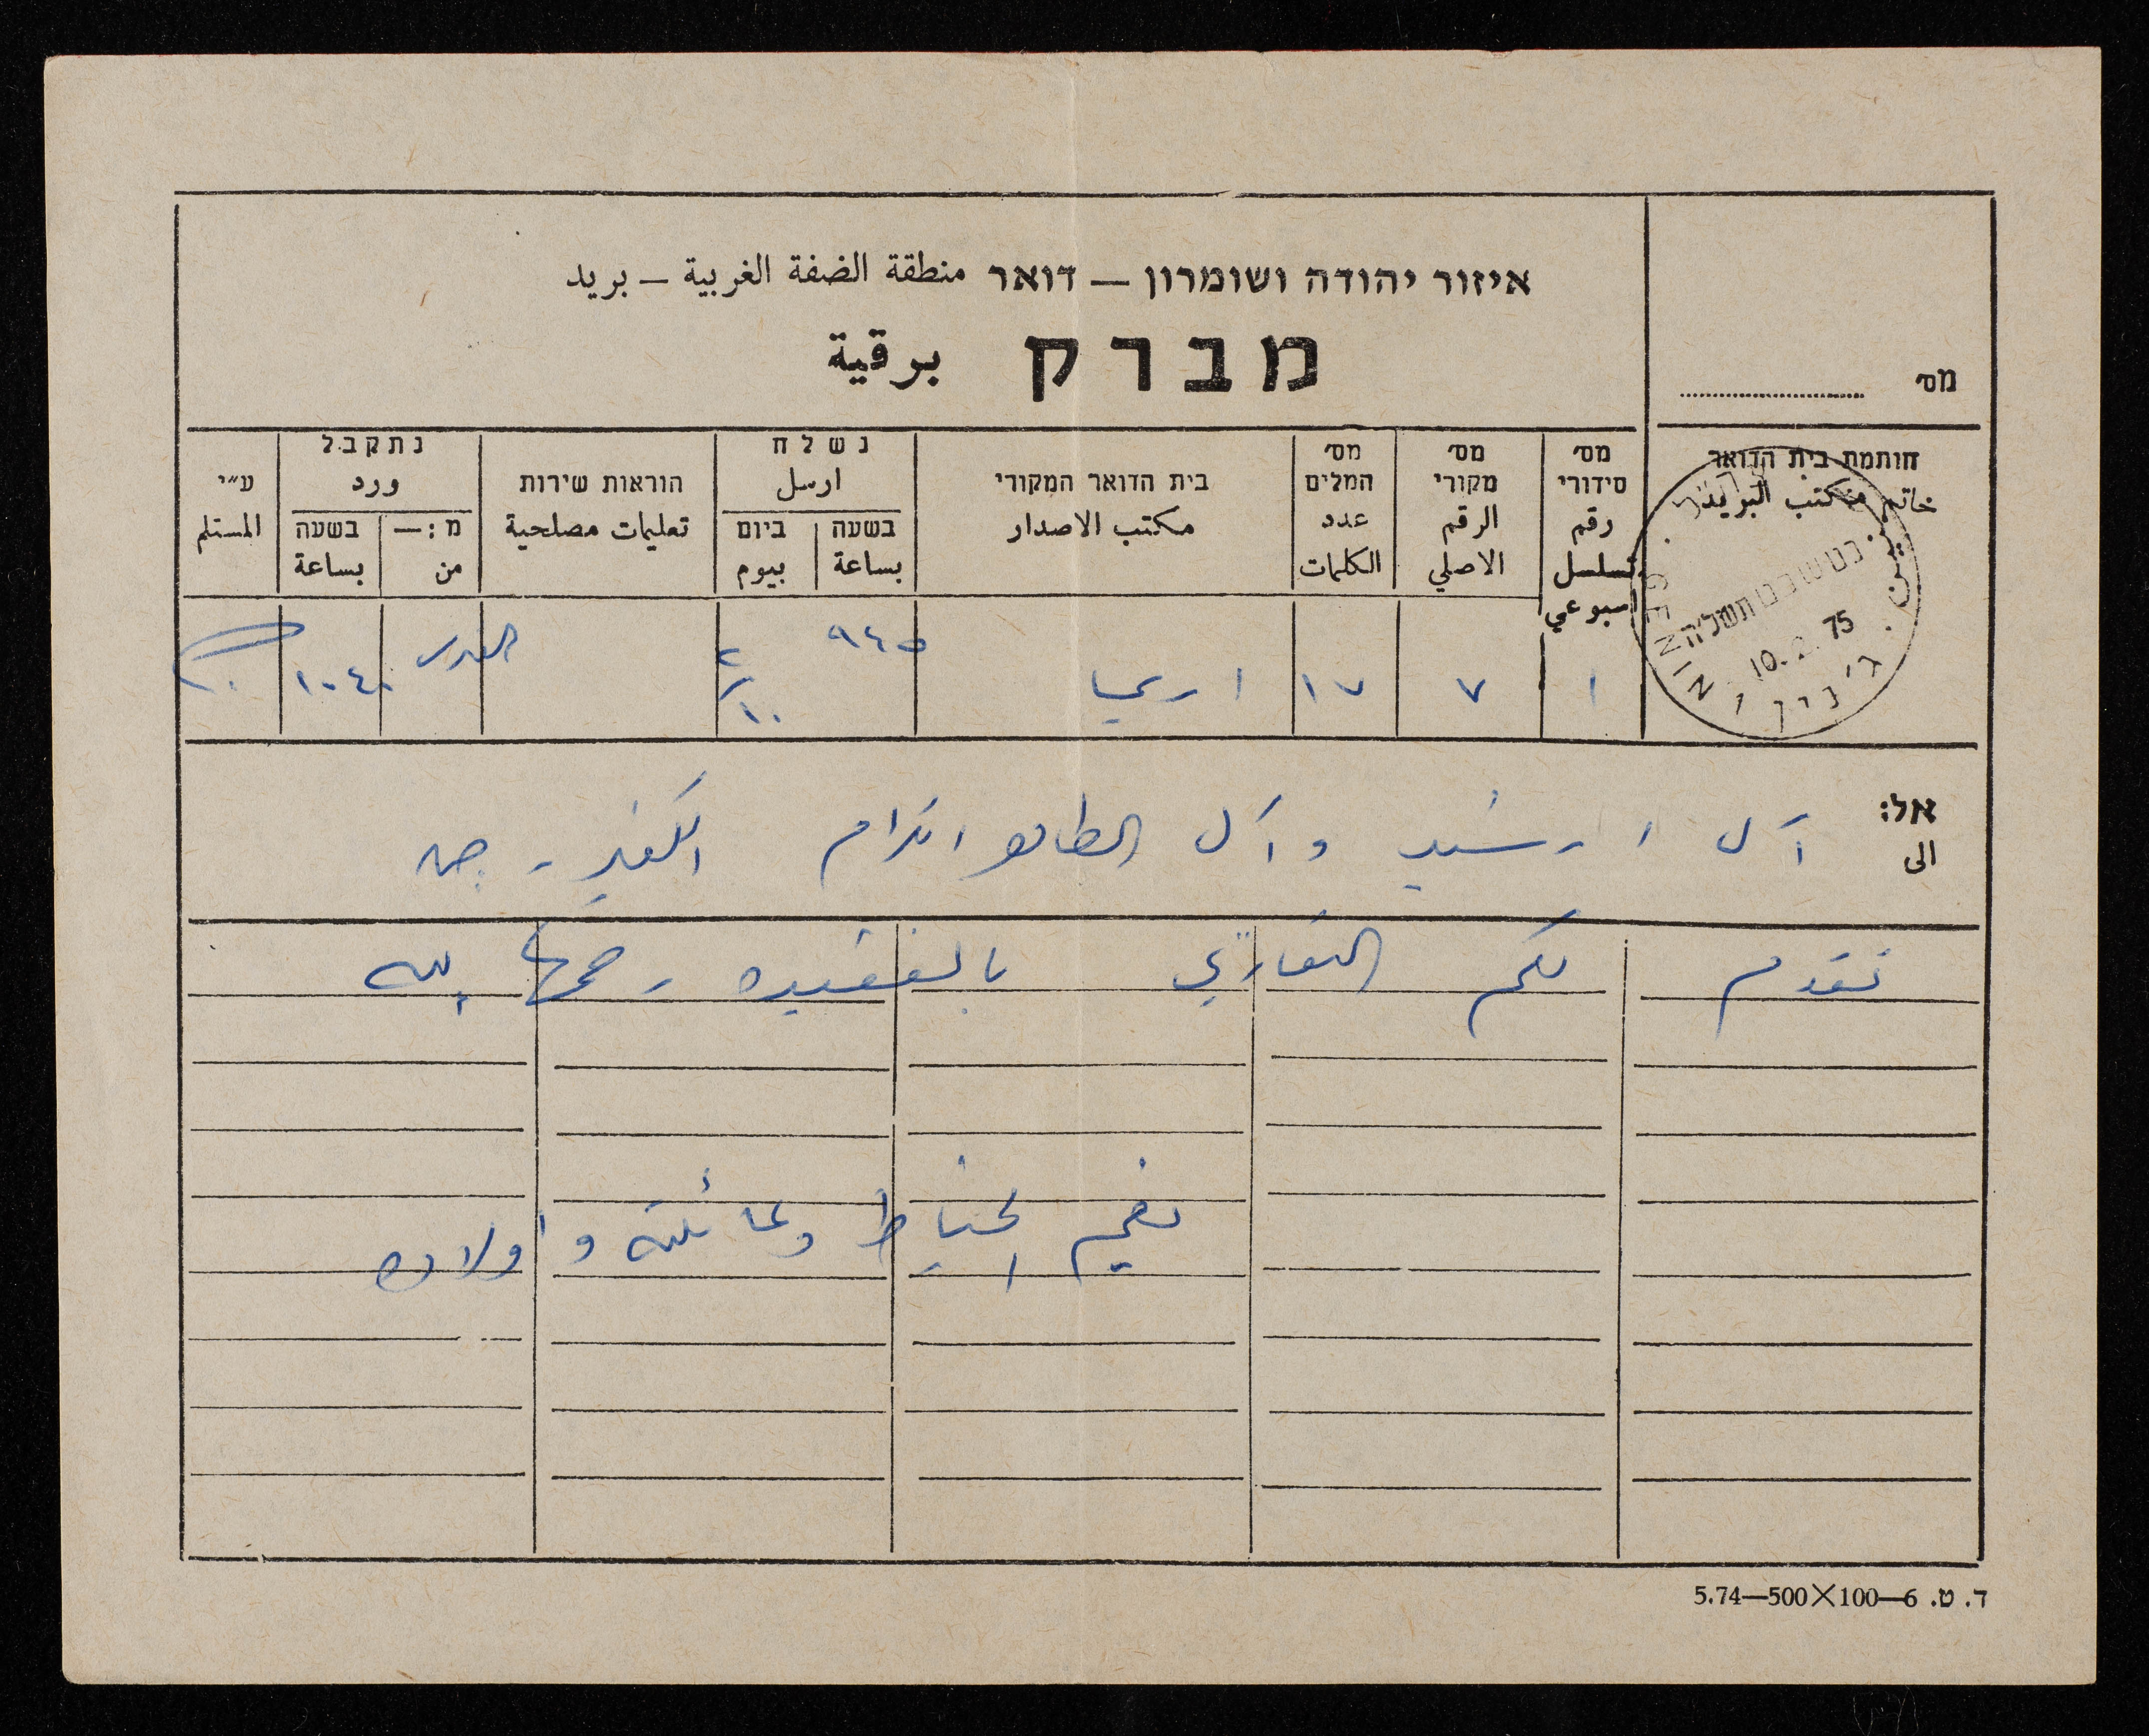 איזור יהודה ושומרון – דואר منطقة الضفة الغربية – بريد
מברק برقية
מס׳
חותמת בית הדואר
خاتم مكتب البريد
מס׳ סידורי رقم تسلسل اسبوعي
מס׳ מקורי الرقم الاصلي
מס׳ המלים عدد الكلمات
בית הדואר המקורי مكتب الاصدار
נשלח ارسل
בשעה بساعة
ביום بيوم
הוראות שירות تعليمات مصلحية
נתקבל ورد
מ:— من
בשעה بساعة
ע״י المستلم
JENIN ג׳נין جنين
10.2.75
١ ٧ ١٧ اريحا ٩٤٥ ٢/١٠ القدس ١٠٤٠
אל: الى
آل ارشيد وآل الطاهر الكرام الكفير - جنين
نقدم لكم التعازي بالفقيده رحمها الله
نعيم الخياط وعائلته واولاده
ד. ט. 6—100×500—5.74